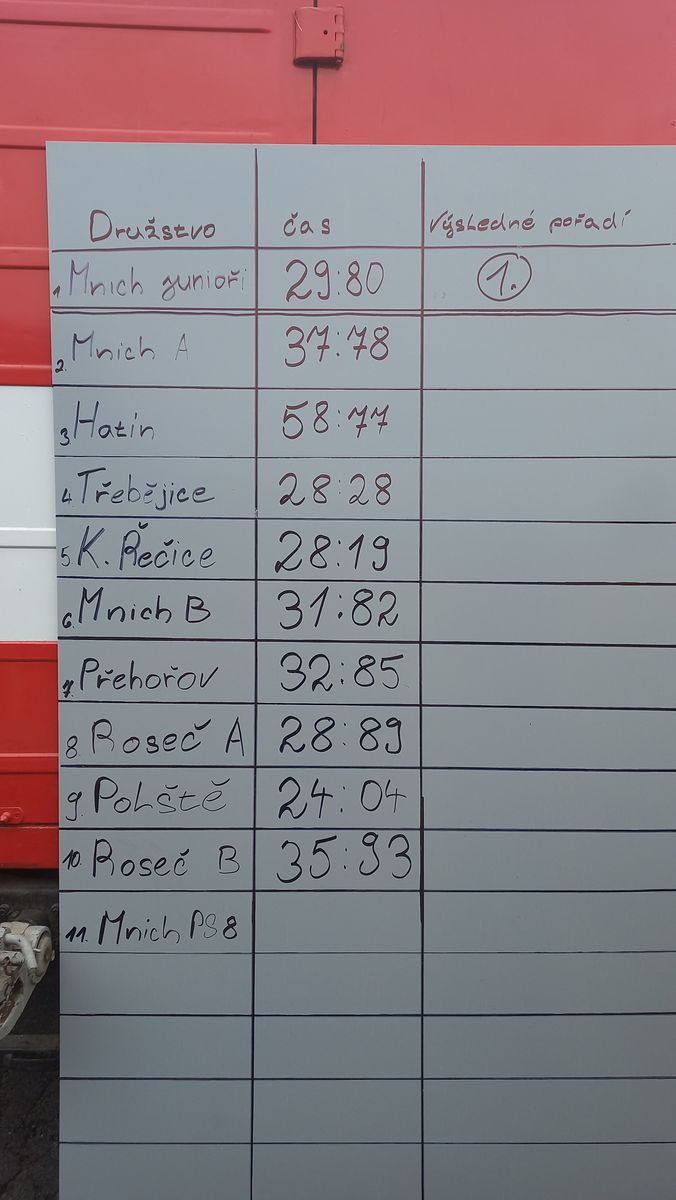 Družstvo čas Výsledné pořadí
1. Mnich junioři 29:80 1.
2. Mnich A 37:78
3. Hatín 58:77
4. Třebějice 28:28
5. K. Řečice 28:19
6. Mnich B 31:82
7. Přehořov 32:85
8. Roseč A 28:89
9. Polště 24:04
10. Roseč B 35:93
11. Mnich PS8